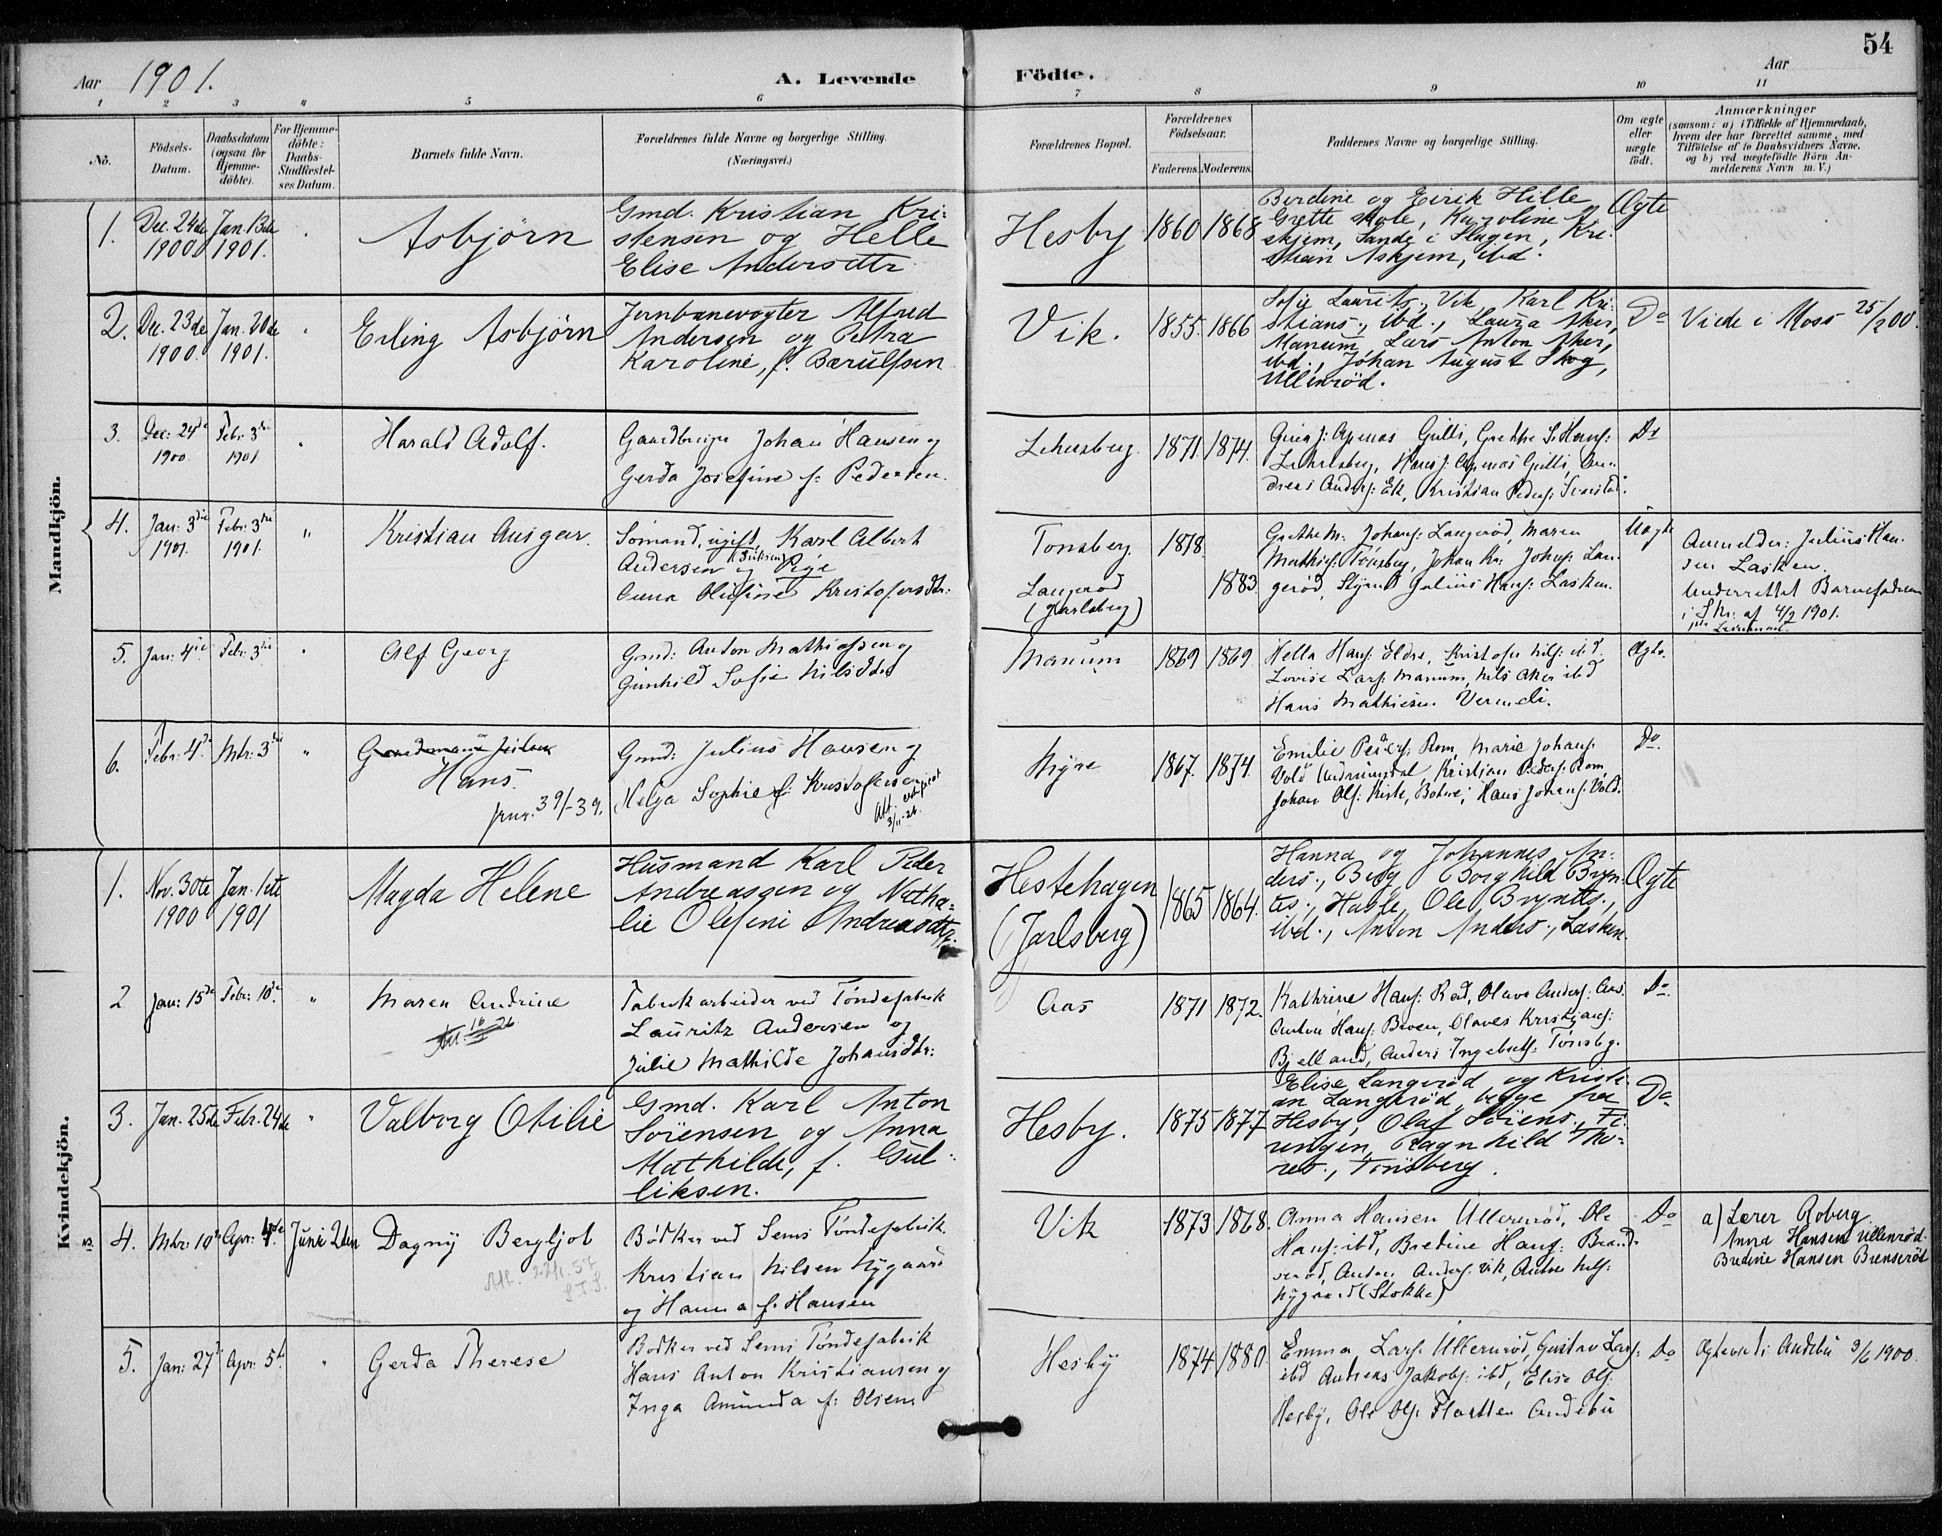 54
Aar 1901.
A. Levende Födte.
Aar
1 2 3 4 5 6 7 8 9 10 11
No.
Födsels-Datum.
Daabsdatum (ogsaa for Hjemmedöbte).
For Hjemmedöbte: Daabs-Stadfæstelses Datum.
Barnets fulde Navn.
Forældrenes fulde Navne og borgerlige Stilling.
(Næringsvei.)
Forældrenes Bopæl.
Forældrenes Födselsaar.
Faderens. Moderens.
Faddernes Navne og borgerlige Stilling.
Om ægte eller uægte födt.
Anmærkninger
(saasom: a) i Tilfælde af Hjemmedaab,
hvem der har forrettet samme, med
Tilföielse af to Daabsvidners Navne,
og b) ved uægtefödte Börn An-
melderens Navn m. V.)
Mandkjön.
1. Dec. 24de 1900. Jan. 13de 1901. " Asbjørn
Gmd. Kristian Kri-
stensen og Helle
Elise Andersdtr.
Hesby 1860 1868
Berdine og Eirik Hille
Grette skole, Karoline A
skjem, Sande i Slagen, Kri-
stian Askjem, ibd.
Ægte
2. Dec. 23de 1900. Jan. 20de 1901. " Erling Asbjørn
Jernbanevogter Alfred
Andersen og Petra
Karoline, f. Barulfsen
Vik. 1855. 1866
Sofie Laurits., Vik, Karl Kri-
stians., ibd., Laura Aker,
Manum, Lars Anton Aker,
ibd., Johan August Skog,
Ullenrød.
Do Viede i Moss 25/2 00.
3. Dec: 24de 1900. Febr: 3die 1901 " Harald Adolf.
Gaardbruger Johan Hansen og
Gerda Josefine f: Pedersen.
Lehnsberg. 1871. 1874.
Gulli, Grethe S. Hans:
Lehnsberg, Hans: Gulli, An-
dreas Anders: Ek, Kristian Peders:
Do
4. Jan: 3die 1901. Febr: 3die 1901. " Kristian Ansgar.
Sømand, ugift, Karl Albert
Andersen og Pige
Anna Olefine Kristofersdtr:
Tønsberg. 1878.
Langerød (Jarlsberg) 1883
Grethe M. Johans: Langerød, Maren
Mathis: Tønsberg, Johan Johans: Lan-
gerød, Styrmd Julius Hans: Lasken.
Uægte
Anmelder: Julius Han-
sen Lasken.
Underrettet Barnefaderen
i Skr. af 4/2 1901.
5. Jan: 4de Febr: 3die " Alf Georg
Gmd: Anton Mathiassen og
Gunhild Sofie Nilsdtr
Manum 1869 1869
Hella Hans: Eldre, Kristofer Nils: ibd.
Lovise Lars: Manum, Nils Aker ibd
Hans Mathisen Vermeli.
Ægte.
6. Febr: 4de Mrs: 3die " Hans.
jrnr. 39/-39.
Gmd: Julius Hansen og
Helga Sophie f: Kristofersen
Att. 3/11-26.
Myre 1867. 1874
Emilie Peders: Rom, Marie Johans:
Vold Undrumsdal, Kristian Peders: Rom,
Johan Ols: Kirke, Botne, Hans Johans: Vold.
Do
Kvindekjön.
1. Nov. 30te 1900 Jan. 1ste 1901 Magda Helene
Husmand Karl Peder
Andreassen og Natha-
lie Olefine Andreasdtr.
Hestehagen (Jarlsberg) 1865 1864.
Hanna og Johannes An-
ders., Berg Borghild Bryn-
tes., Hasle, Ole Bryntes.,
ibd., Anton Anders., Lasken.
Ægte
2 Jan: 15de Febr: 10de " Maren Andrine
Fabrikarbeider ved Tøndefabrik
Lauritz Andersen og
Julie Mathilde Johansdtr:
Aas 1871 1872.
Kathrine Hans: Rød, Olava Anders: Aas.
Anton Hans: Bruen, Olaves Kristians:
Bjelland, Anders Ingebrets: Tønsbg.
Do
3. Jan. 25de Febr. 24de " Valborg Otilie
Gmd. Karl Anton
Sörensen og Anna
Mathilde, f. Gul-
liksen.
Hesby. 1875 1877
Elise Langerød og Kristi-
an Langerød, begge fra
Hesby, Olaf Sörens.,
Ragnhild Tho-
res., Tønsberg.
Do
4. Mrs: 10de Apr: 4de Juni 2den Dagny Bergljot
Att. 22/1.57
S.T.S.
Bødker ved Sems Tøndefabrik
Kristian Nilsen Nygaard
og Hanna f. Hansen
Vik 1873 1868.
Anna Hansen Ullenrød, Ole
Hans: ibd, Bredine Hans: Brend-
serød, Anton Anders: Vik, Anton Nils:
Nygaard (Stokke)
Do
a) Lærer Roberg
Anna Hansen Ullenrød.
Bredine Hansen Brenserød
5. Jan: 27de Apr: 5te " Gerda Therese
Bødker ved Sems Tøndefabrik
Hans Anton Kristiansen og
Inga Amunda f: Olsen
Hesby 1874 1880
Emma Lars: Ullenrød, Gustav Lars:
ibd Andreas Jakobs: ibd, Elise Ols:
Hesby, Ole Ols: Flaatten Andebu
Do
Ægteviet i Andebu 3/6 1900.